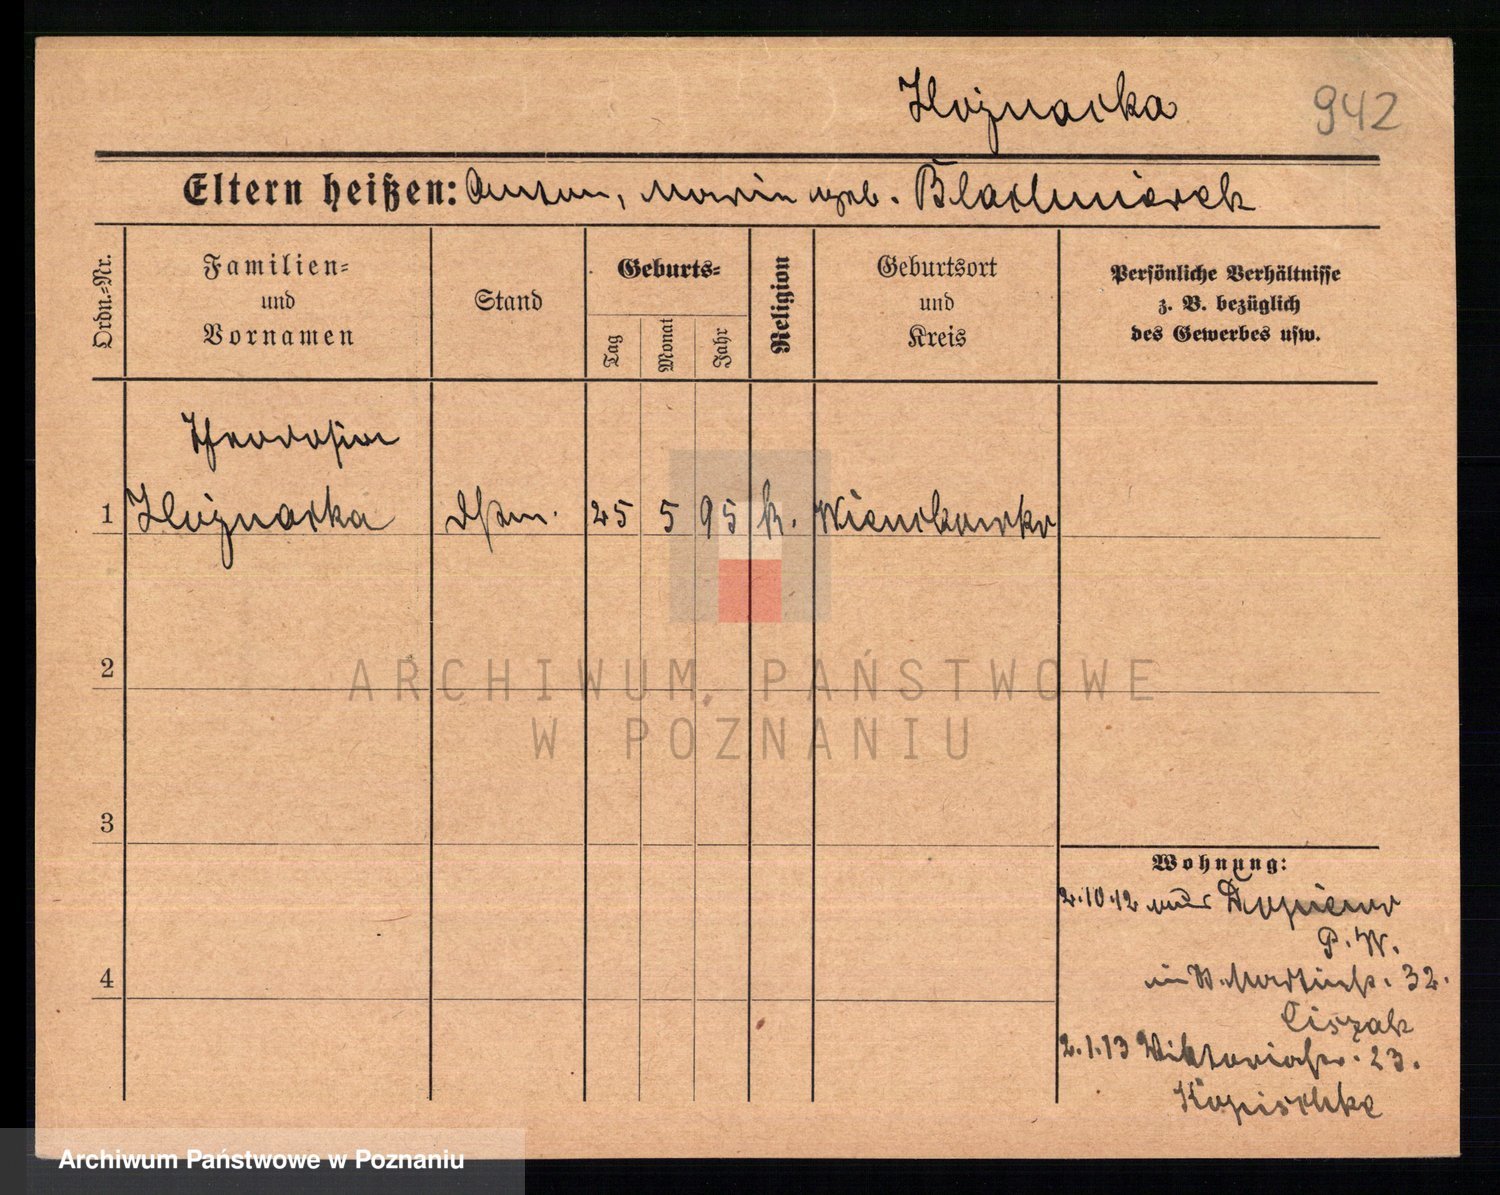 942
Eltern heißen: Anton, Maria geb.
Ordn.-Nr.
Familien-
und
Vornamen
Stand
Geburts-
Tag
Monat
Jahr
Religion
Geburtsort
und
Kreis
Persönliche Verhältnisse
z. B. bezüglich
des Gewerbes usw.
Theodosia
1 25 5 95 k.
2
ARCHIWUM PAŃSTWOWE
W POZNANIU
3
Wohnung:
2.10.12
P. W.
4
in St. Martinstr. 32.
Ciszak
2.1.13 Viktoriastr. 23.
Kopischke
Archiwum Państwowe w Poznaniu